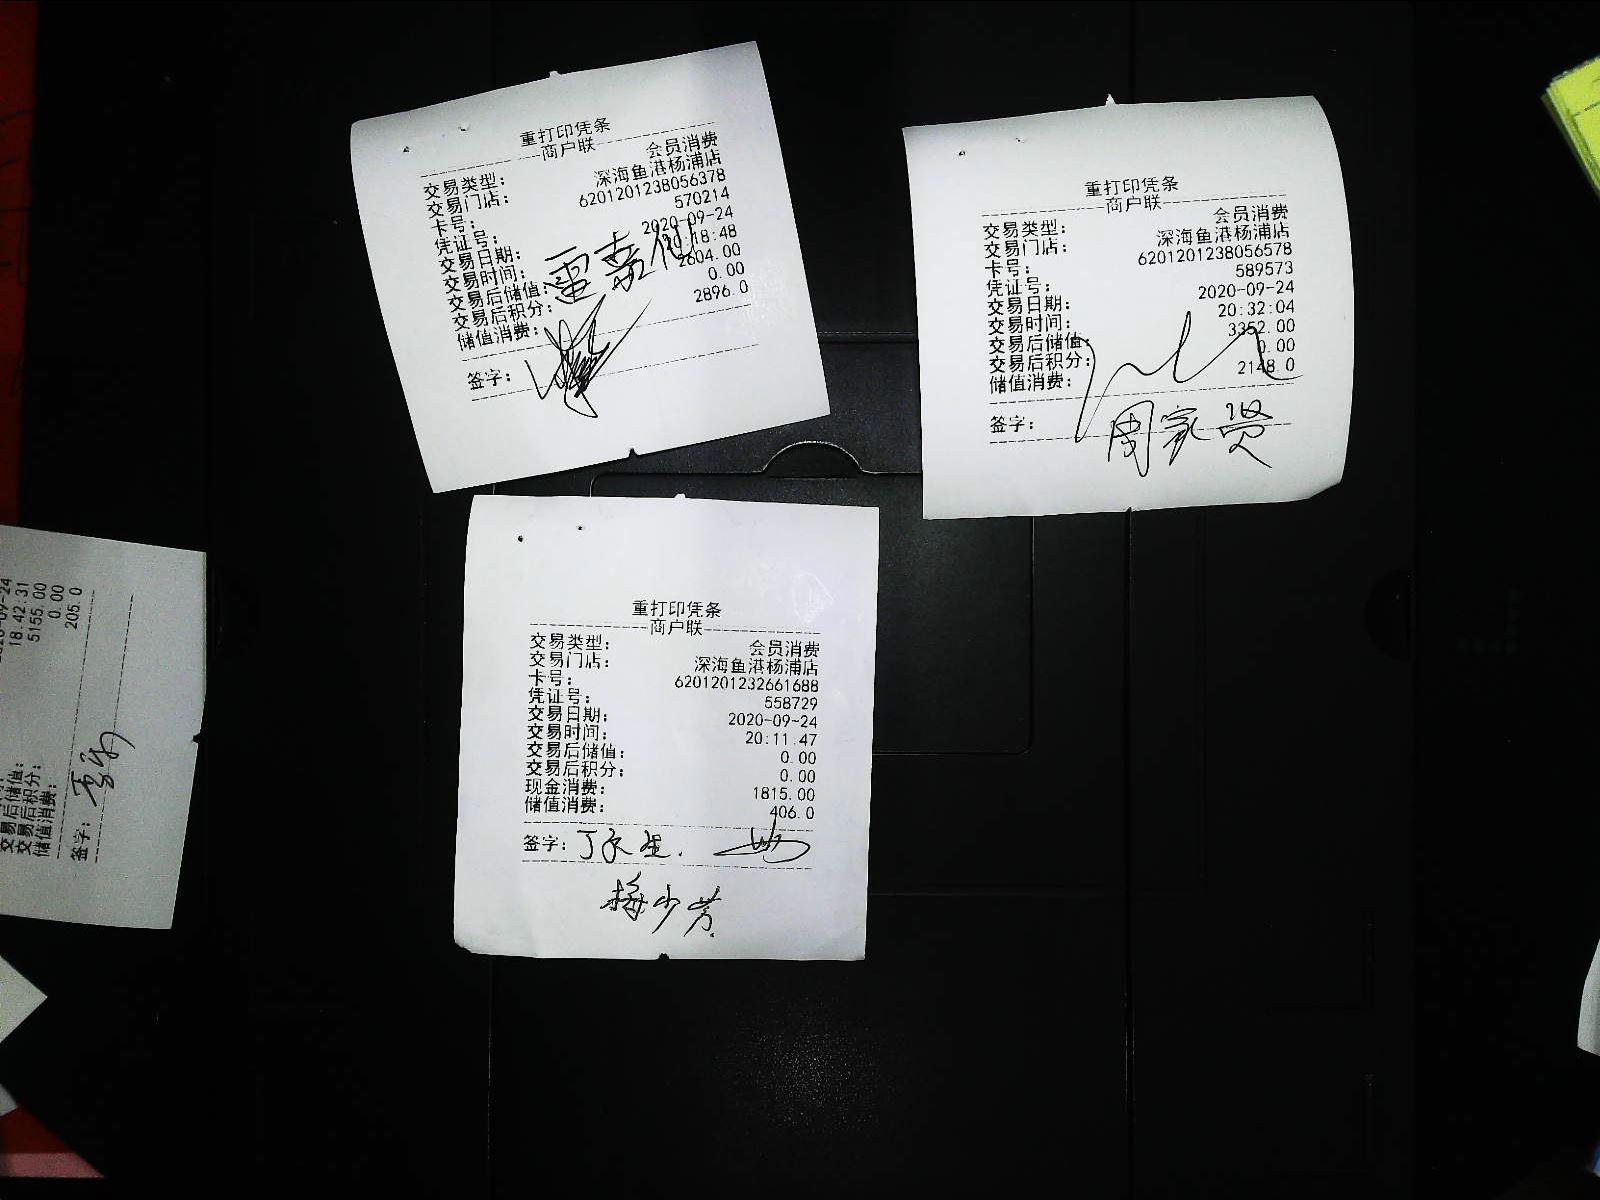 重打印凭条
商户联
交易类型: 会员消费
交易门店: 深海鱼港杨浦店
卡号: 6201201238056378
凭证号: 570214
交易日期: 2020-09-24
交易时间: :18:48
交易后储值: 2604.00
交易后积分: 0.00
储值消费: 2896.0
签字:
重打印凭条
商户联
交易类型: 会员消费
交易门店: 深海鱼港杨浦店
卡号: 6201201238056578
凭证号: 589573
交易日期: 2020-09-24
交易时间: 20:32:04
交易后储值: 3352.00
交易后积分: 0.00
储值消费: 2148.0
签字:
周家贤
重打印凭条
商户联
交易类型: 会员消费
交易门店: 深海鱼港杨浦店
卡号: 6201201232661688
凭证号: 558729
交易日期: 2020-09-24
交易时间: 20:11:47
交易后储值: 0.00
交易后积分: 0.00
现金消费: 1815.00
储值消费: 406.0
签字:
梅少芳
18:42:31
交易后储值: 5155.00
交易后积分: 0.00
储值消费: 205.0
签字: